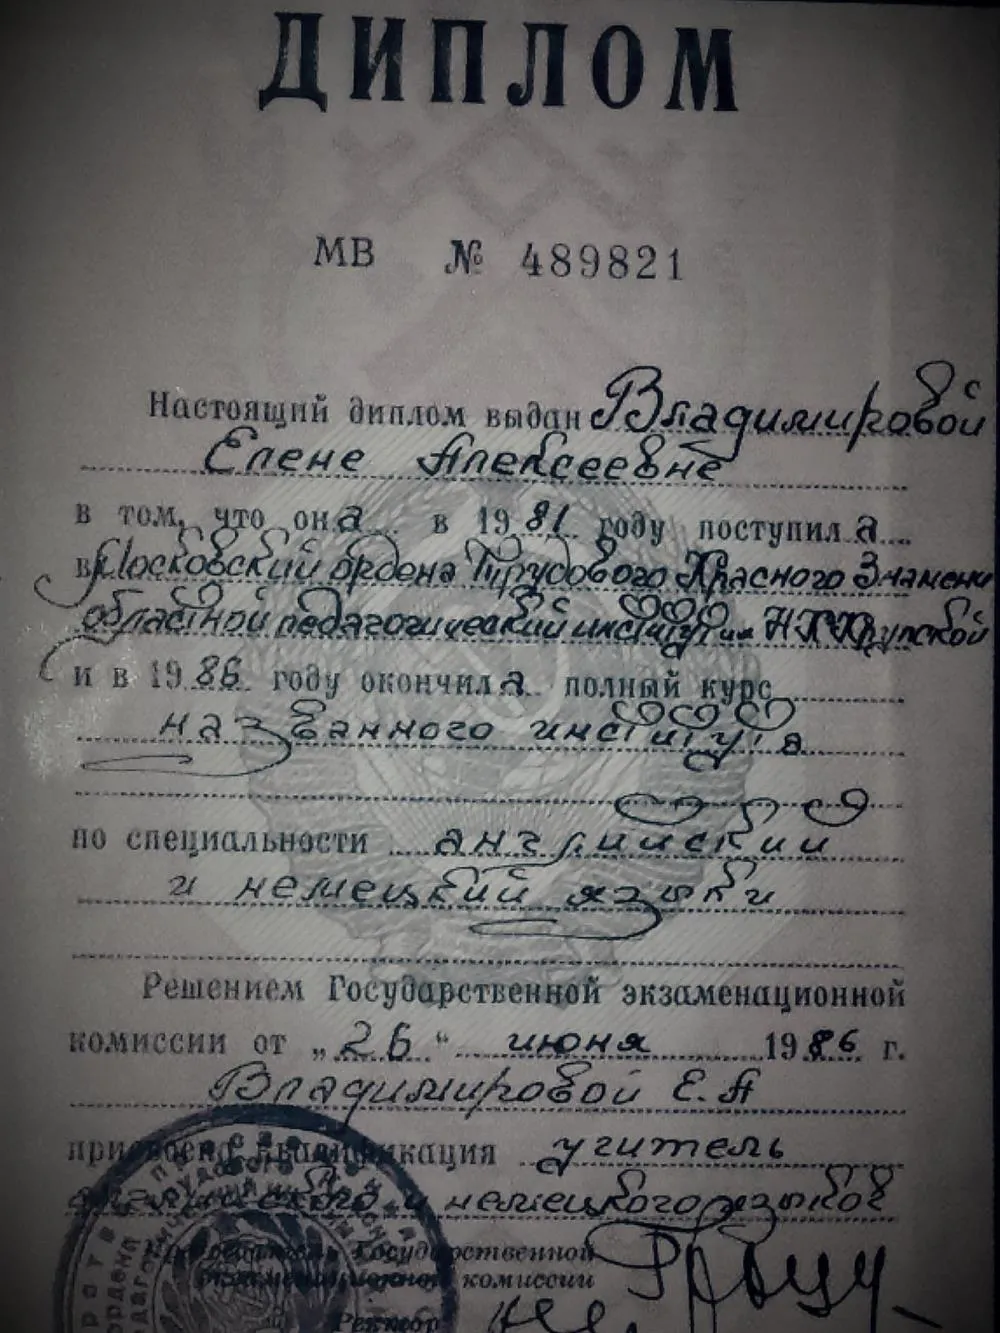 ДИПЛОМ
МВ № 489821
Настоящий диплом выдан Владимировой
Елене Алексеевне
в том, что она в 1981 году поступила
в Московский ордена Трудового Красного Знамени
областной педагогический институт им Н.К.Крупской
и в 1986 году окончила полный курс
названного института
по специальности английский
и немецкий языки
Решением Государственной экзаменационной
комиссии от „26“ июня 1986 г.
Владимировой Е.А
присвоена квалификация учитель
английского и немецкого языков
Председатель Государственной
экзаменационной комиссии
Ректор